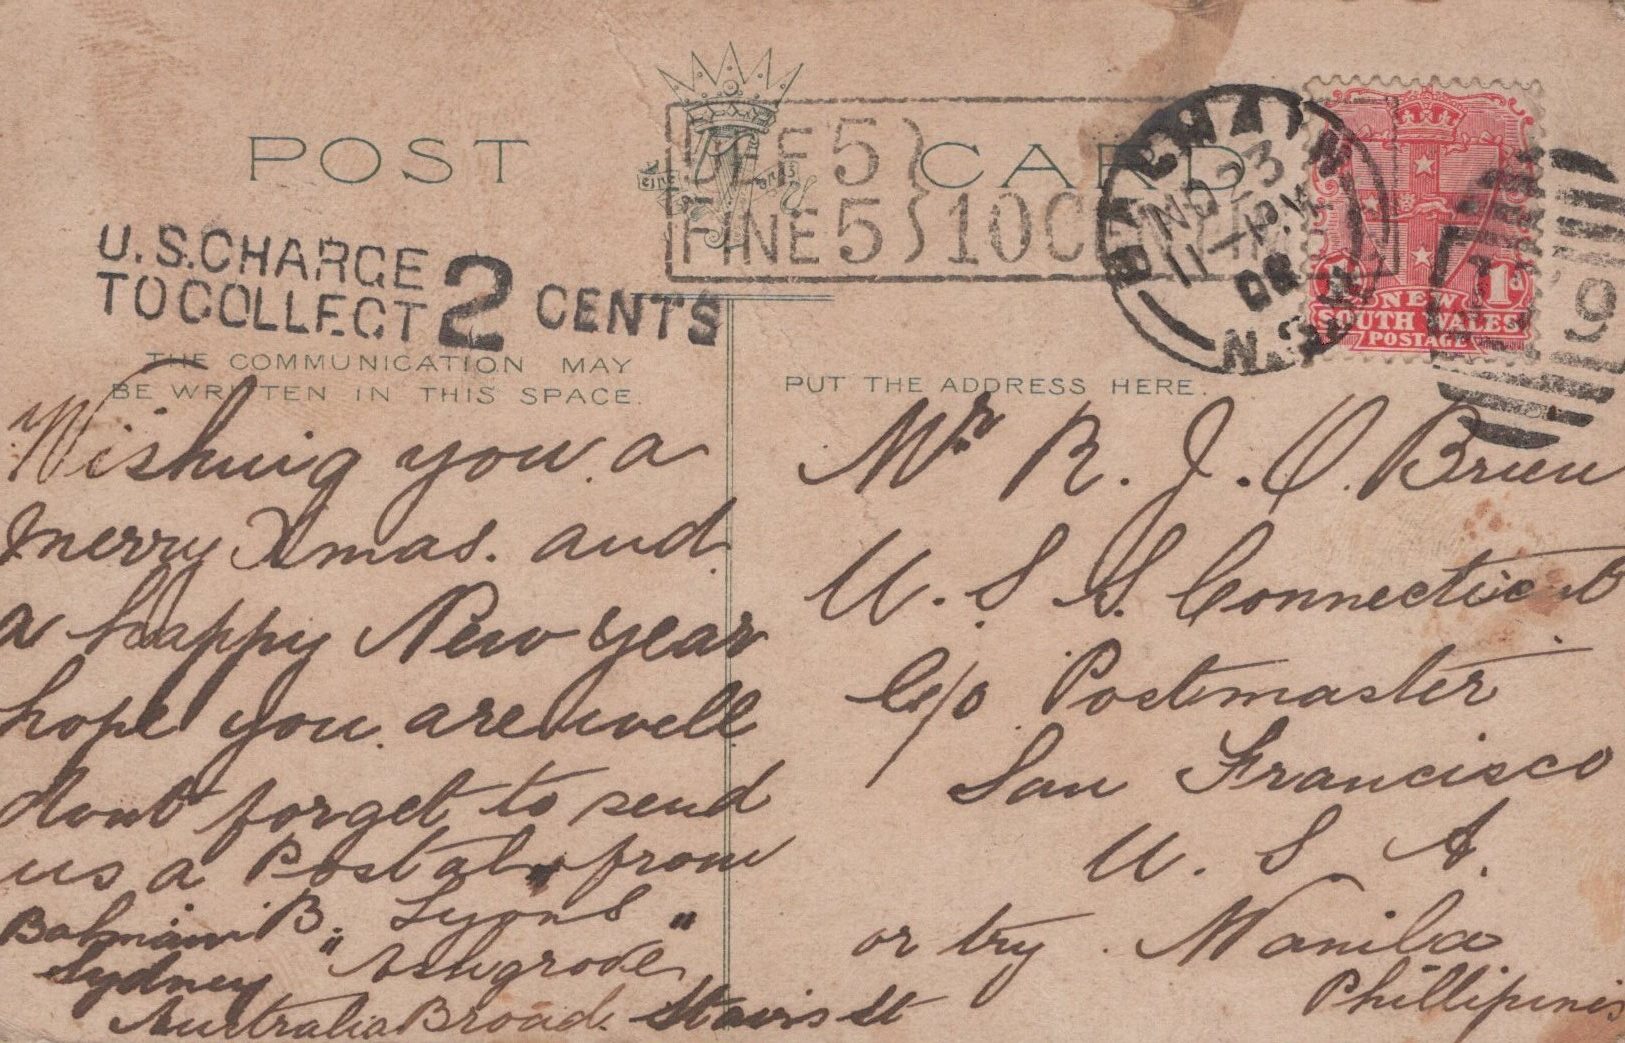 POST CARD
DEF 5
FINE 5 } 10 C
NO 23
11- PM
08
N.S.W
NEW
1d
SOUTH WALES
POSTAGE
U.S. CHARGE
TO COLLECT 2 CENTS
THE COMMUNICATION MAY
BE WRITTEN IN THIS SPACE.
PUT THE ADDRESS HERE.
Wishing you a
merry Xmas. and
a happy New year
hope you are well
dont forget to send
us a Postal from
B. Lyons
Sydney "Ashgrove"
Australia Broad Stairs St
Mr R. J. O. Brien
U. S. S. Connecticut
C/o Postmaster
San Francisco
U. S. A.
or try Manila
Phillipinis